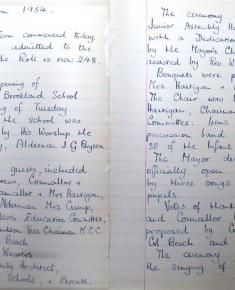 1954.
commenced today.
admitted to the
the Roll is now 248.
opening of
Brookland School
of Tuesday
the school was
by His Worship the
Alderman J G Payson
guests, included
Councillor &
Councillor & Mrs Hartigan,
Alderman Mrs Crump,
Education Committee,
Vice Chairman M.C.C.
Beach
Architect,
Schools, & Parents.
The ceremony
Junior Assembly H
with a Dedication
by the Mayor's Cha
assisted by Rev. W
Bouquets were p
Mrs Hartigan &
The Chair was
Hartigan, Chairman
Committee. Items
percussion band
38 of the Infant
The Mayor de
officially open
by three songs
pupils.
Votes of thanks
and Councillor
proposed by C
Col Beach and
The ceremony
the singing of